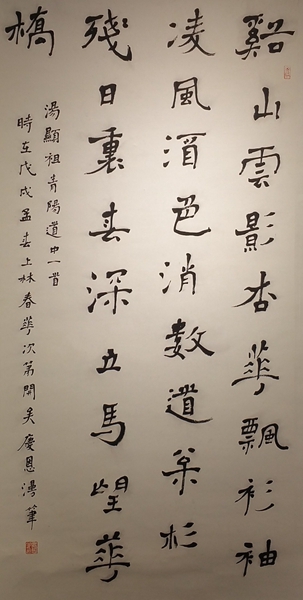 谿山雲影杏華飄衫袖
凌風酒色消數道枀杉
殘日裏春深立馬望華
橋
湯顯祖青陽道中一首
時在戊戌孟春上林春華次第開吴慶恩漫筆